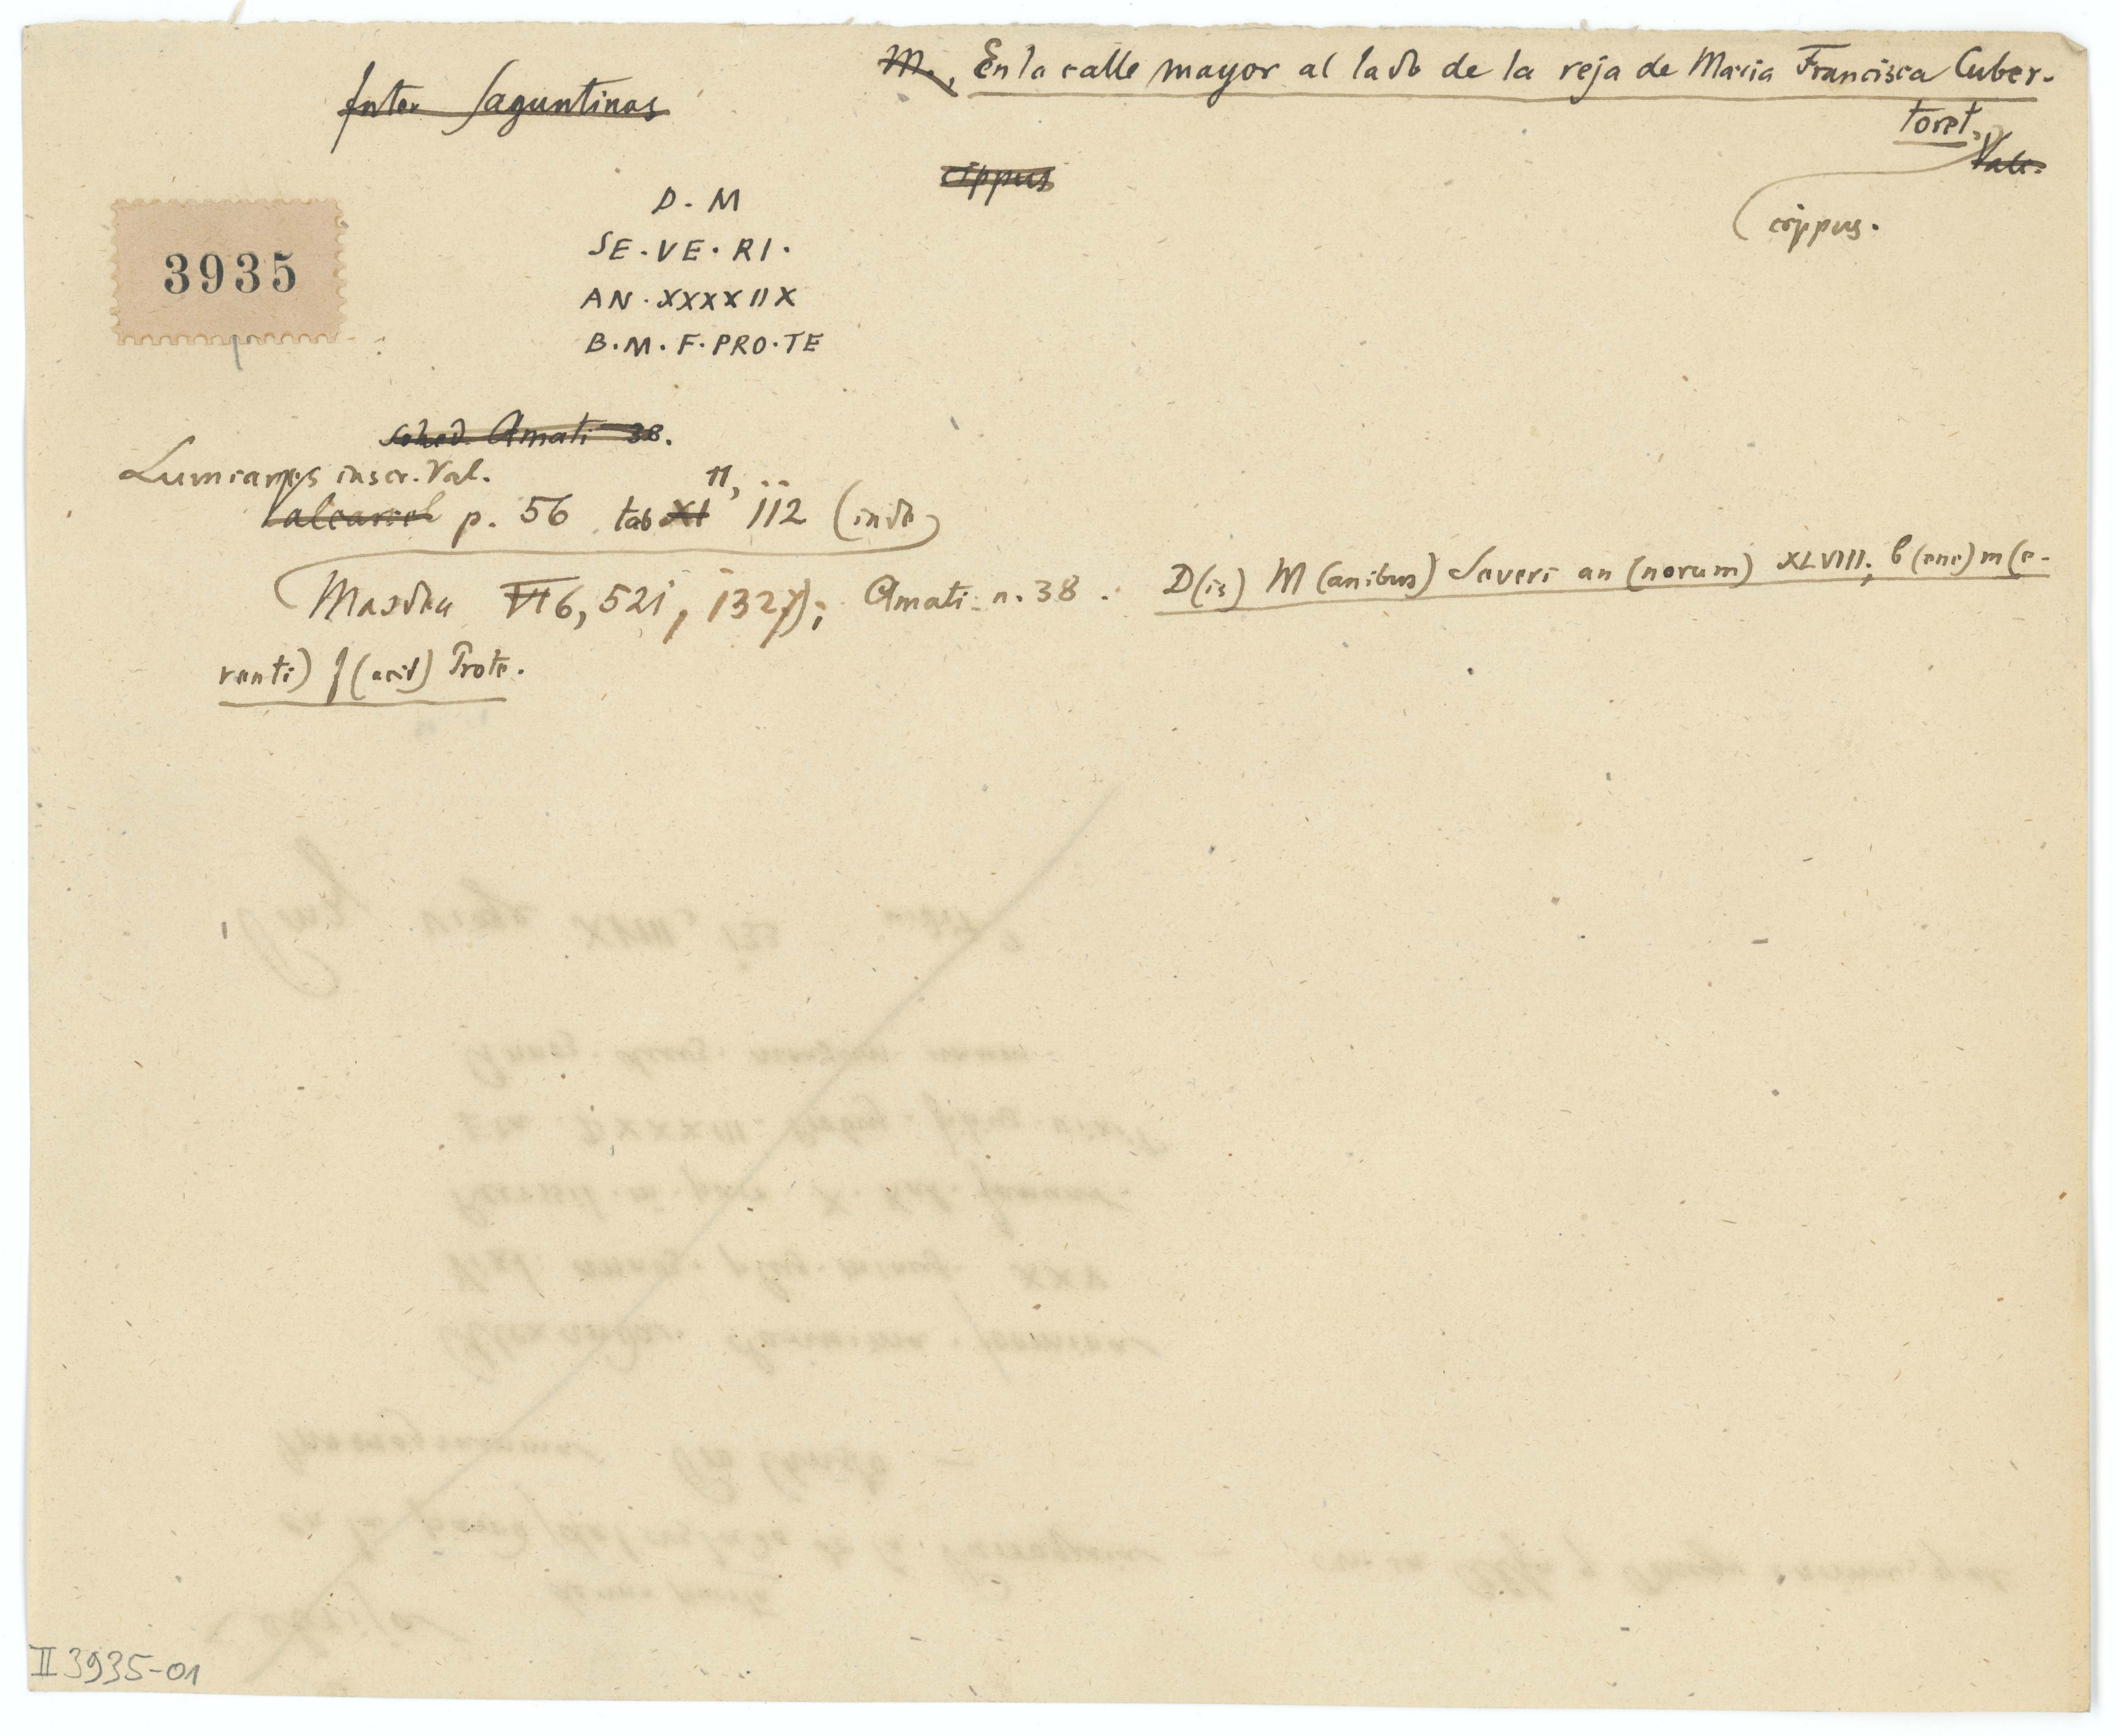 Inter Saguntinas
M., En la calle mayor al lado de la reja de Maria Francisca Cuber-
toret,
Valc.
cippus
cippus.
3935
D. M
SE . VE . RI .
AN . XXXXIIX
B. M. F. PRO. TE
sched. Amati 38.
Lumiares inscr. Val.
Valcarcel p. 56 tab XI 11, 112 (inde
Masdeu VI 6, 521, 1327); Amati n. 38. D(is) M(anibus) Severi an(norum) XLVIII; b(ene) m(e-
renti) f(acit) Prote.
II 3935-01